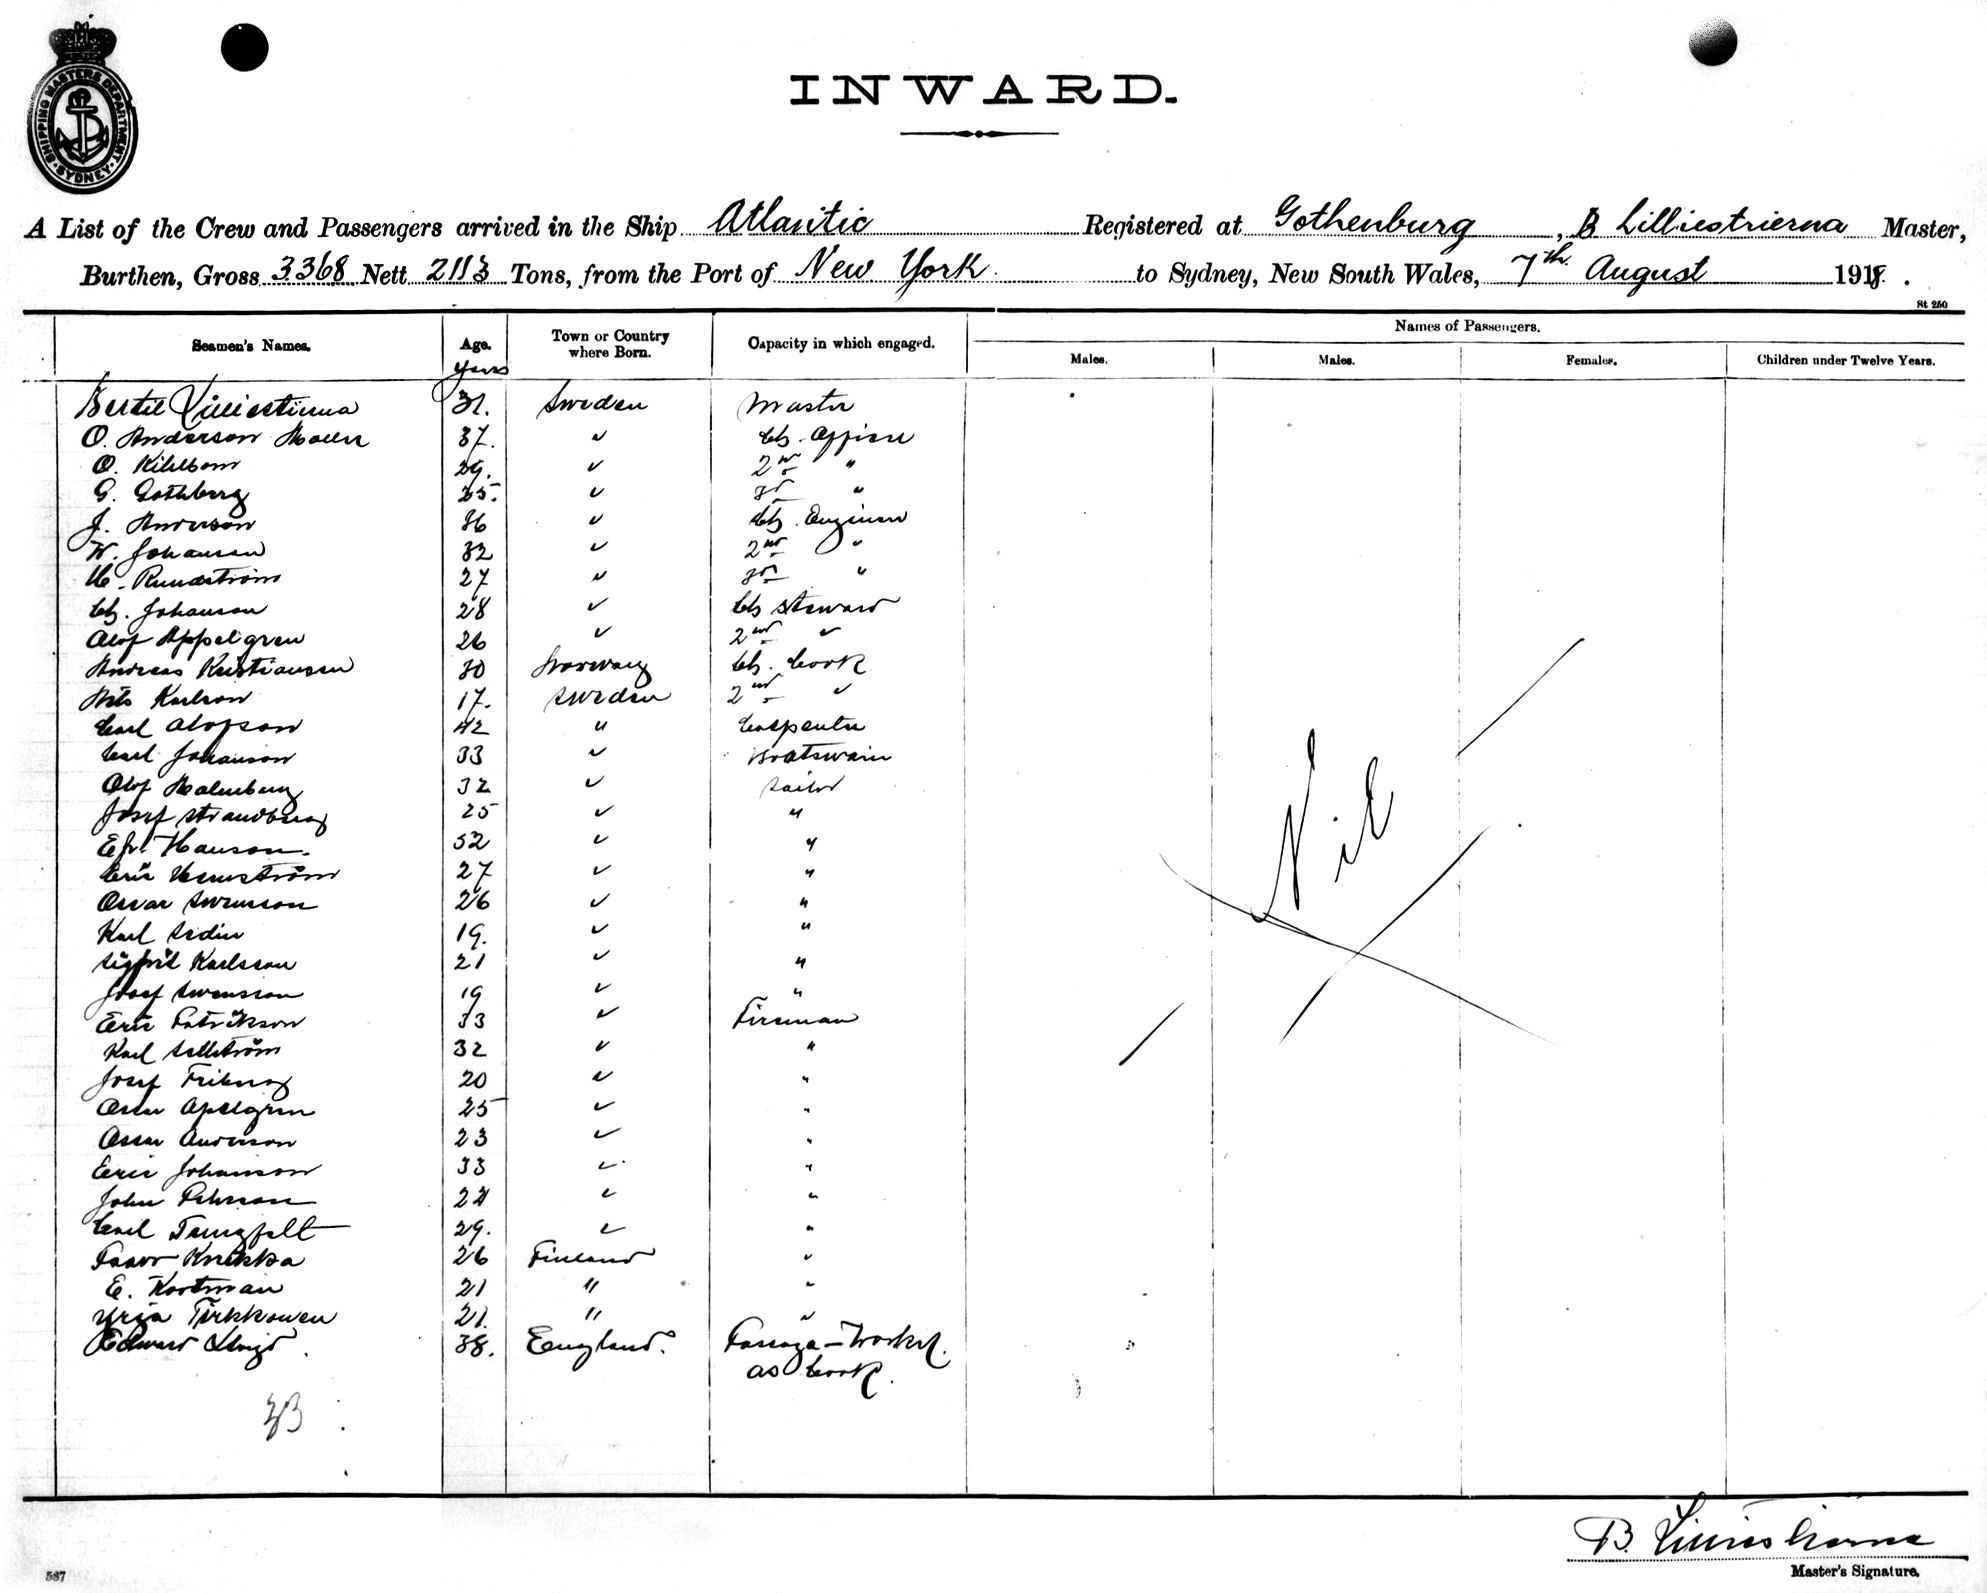 SHIPPING MASTERS DEPARTMENT
SYDNEY
INWARD.
A List of the Crew and Passengers arrived in the Ship Atlantic Registered at Gothenburg, B Lilliestrierna Master,
Burthen, Gross 3368 Nett 2113 Tons, from the Port of New York to Sydney, New South Wales, 7th August 1918.
St 250
Seamen's Names. Age. Town or Country where Born. Capacity in which engaged. Names of Passengers.
years Males. Males. Females. Children under Twelve Years.
Bertil Lilliestierna 31. Sweden Master
O. Anderson 37. " Ch. Officer
O. Kihlbom 29. " 2nd "
G. Gothberg 25. " 3rd "
J. Anderson 36 " Ch. Engineer
W. Johanson 32 " 2nd "
Rundström 27 " 3rd "
Ch. Johanson 28 " Ch Steward
Olof Appelgren 26 " 2nd "
Andreas Kristiansen 30 Norway Ch. Cook
Nils Karlson 17. Sweden 2nd "
Carl Olofson 42 " Carpenter
Carl Johanson 33 " Boatswain
Olof Malmberg 32 " Sailor
Josef Strandberg 25 " "
Hanson 52 " "
Eric 27 " "
Oscar Swenson 26 " "
Karl Sedin 19. " "
Sigfrid Karlsson 21 " "
Josef Swensson 19 " "
Eric Patrikson 33 " Fireman
Karl Sellström 32 " "
Josef Friberg 20 " "
Oscar Apelgren 25 " "
Oscar Anderson 23 " "
Eric Johanson 33 " "
John Pehrson 24 " "
Carl 29. " "
26 Finland "
E. Kortman 21 " "
Yrja Tirkkonen 21. " "
Edward Lloyd 38. England. Passage - Worked
as Cook.
Nil
33
B. Lilliestierna
Master's Signature.
587